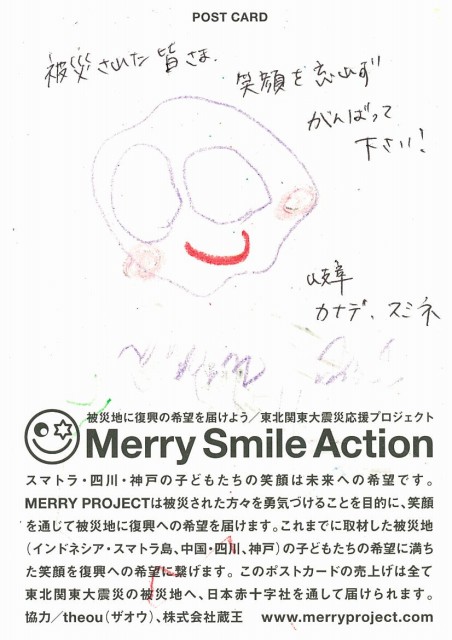 POST CARD
被災された皆さま
笑顔を忘れず
がんばって
下さい!
岐阜
カナデ、スミネ
被災地に復興の希望を届けよう/東北関東大震災応援プロジェクト
Merry Smile Action
スマトラ・四川・神戸の子どもたちの笑顔は未来への希望です。
MERRY PROJECTは被災された方々を勇気づけることを目的に、笑顔
を通じて被災地に復興への希望を届けます。これまでに取材した被災地
(インドネシア・スマトラ島、中国・四川、神戸)の子どもたちの希望に満ち
た笑顔を復興への希望に繋げます。このポストカードの売上げは全て
東北関東大震災の被災地へ、日本赤十字社を通して届けられます。
協力/theou(ザオウ)、株式会社蔵王 www.merryproject.com